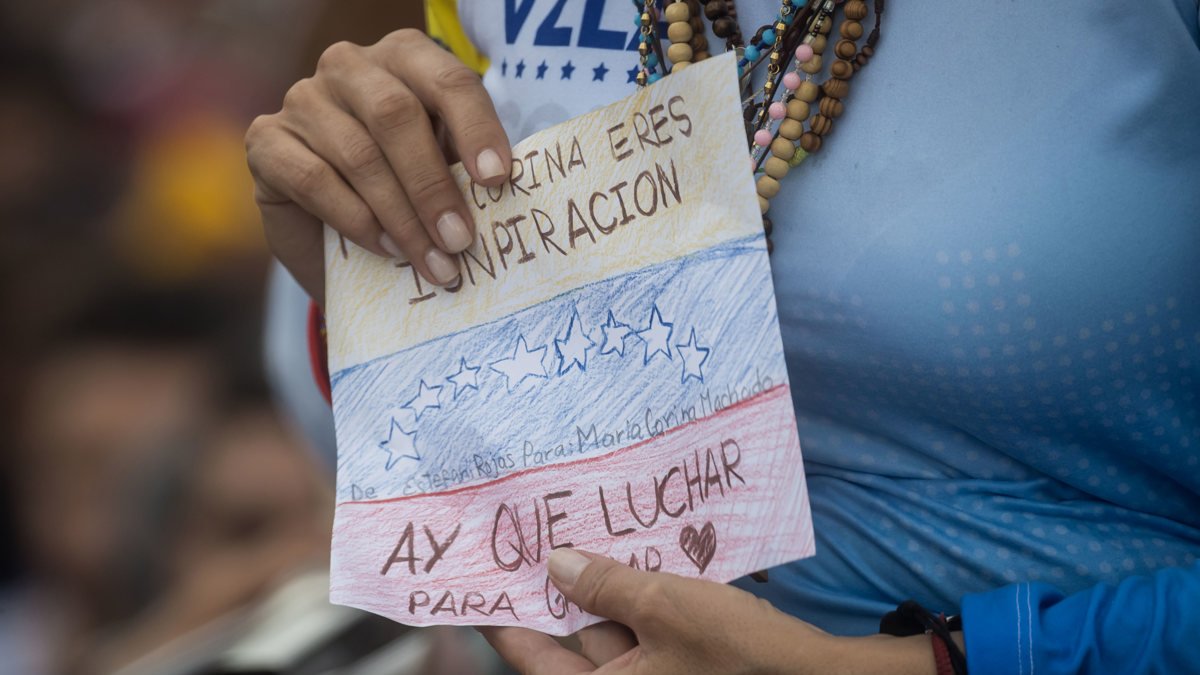 VZLA
CORINA ERES
INNPIRACION
De Estefani Rojas Para: Maria Corina Machado
AY QUE LUCHAR
PARA